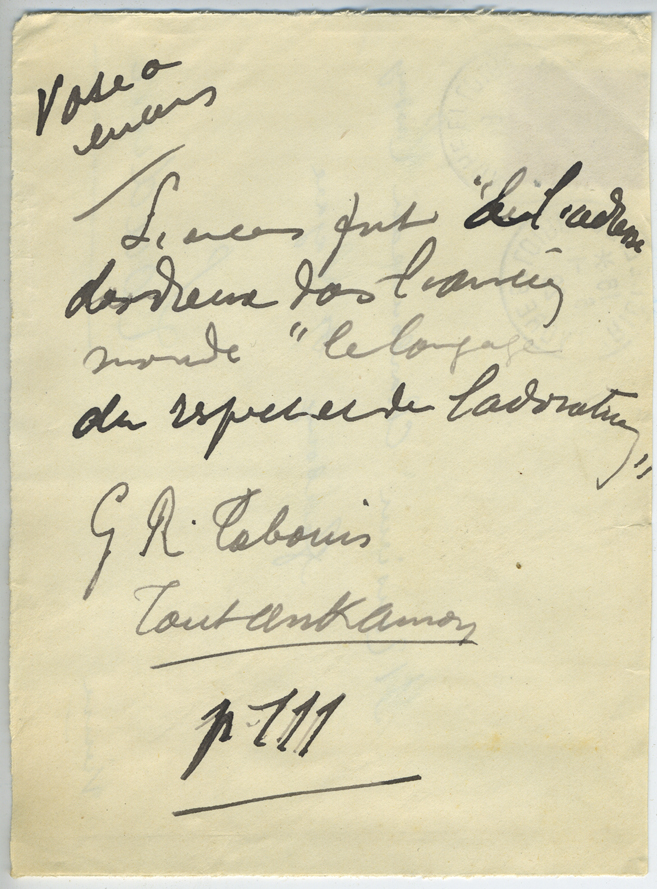 Vase à
encens
L'encens fut "à l'adresse
des dieux dans l'ancien
monde "le langage
du respect et de l'adoration"
G R. Tabouis
Toutankamon
p 111